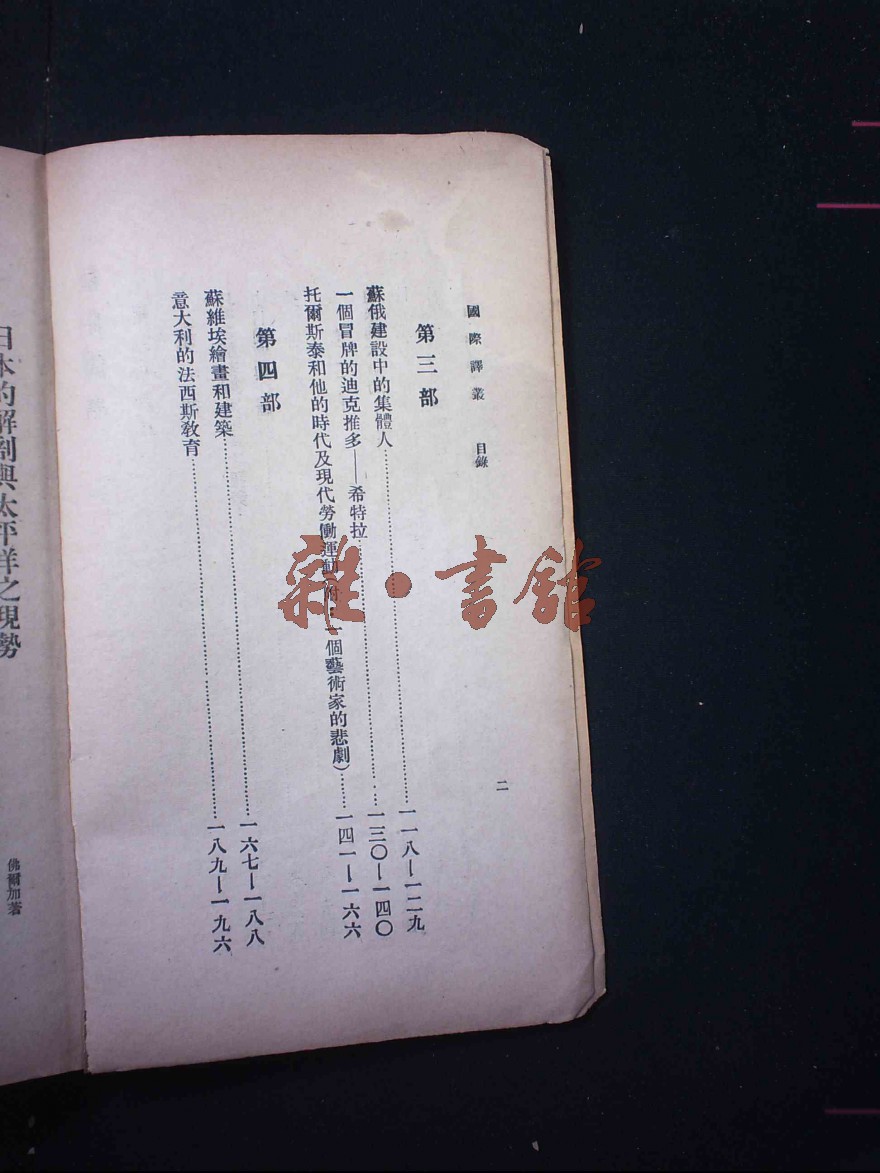 國際譯叢 目錄
二
第三部
蘇俄建設中的集體人……一一八—一二九
一個冒牌的迪克推多——希特拉……一三〇—一四〇
托爾斯泰和他的時代及現代勞働運動(附:一個藝術家的悲劇)……一四一—一六六
第四部
蘇維埃繪畫和建築……一六七—一八八
意大利的法西斯教育……一八九—一九六
日本的解剖與太平洋之現勢
佛爾加著
雜·書館